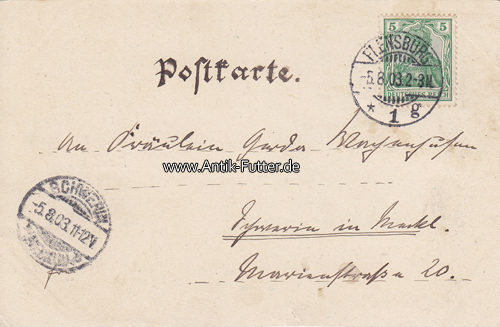 5 5
DEUTSCHES REICH
FLENSBURG
-5.8.03.2-3N.
* 1 g
Postkarte.
An Fräulein Gerda Wagenhusen
www.Antik-Futter.de
SCHWERIN
-5.8.03.11-12V.
Schwerin in Meckl.
Marienstraße 20.